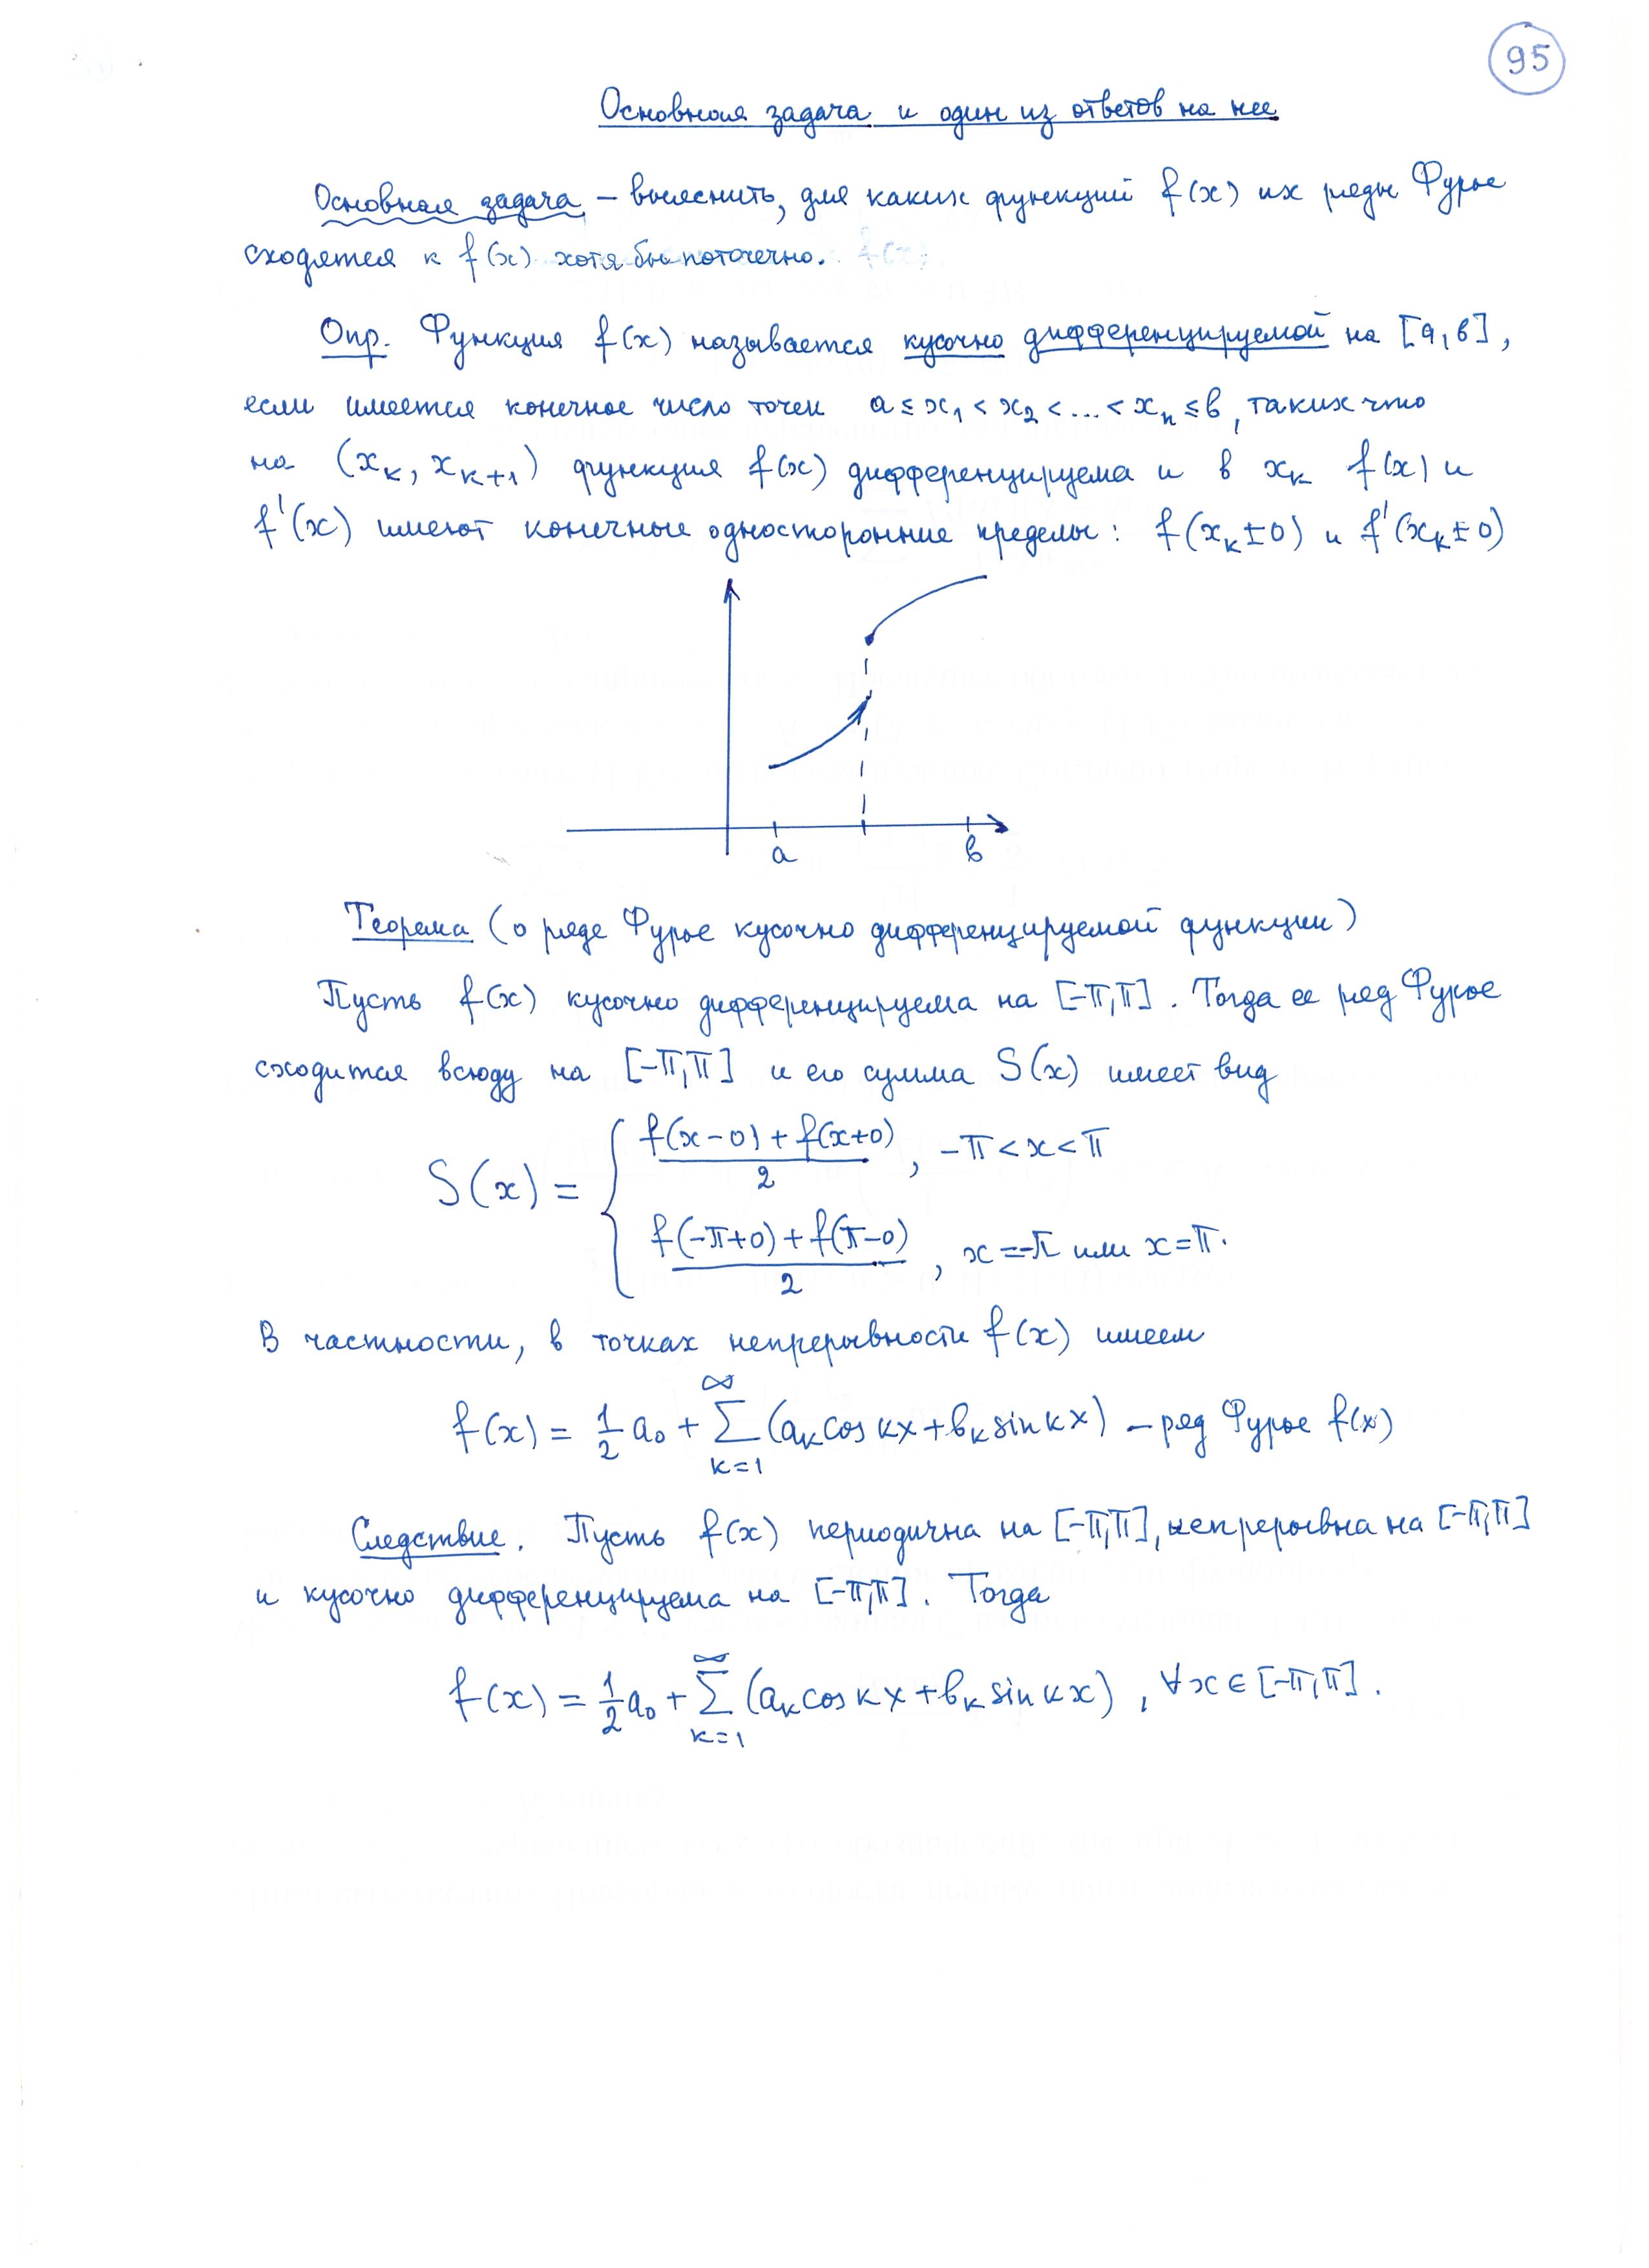 95
Основная задача и один из ответов на нее
Основная задача – выяснить, для каких функций f(x) их ряды Фурье
сходятся к f(x) хотя бы поточечно.
Опр. Функция f(x) называется кусочно дифференцируемой на [a,b],
если имеется конечное число точек a ≤ x₁ < x₂ < ... < xₙ ≤ b, таких что
на (xₖ, xₖ₊₁) функция f(x) дифференцируема и в xₖ f(x) и
f'(x) имеют конечные односторонние пределы: f(xₖ±0) и f'(xₖ±0)
a b
Теорема (о ряде Фурье кусочно дифференцируемой функции)
Пусть f(x) кусочно дифференцируема на [-π,π]. Тогда ее ряд Фурье
сходится всюду на [-π,π] и его сумма S(x) имеет вид
S(x) = { (f(x-0) + f(x+0))/2, -π < x < π
(f(-π+0) + f(π-0))/2, x = -π или x = π.
В частности, в точках непрерывности f(x) имеем
f(x) = 1/2 a₀ + ∑_{k=1}^{∞} (aₖ cos kx + bₖ sin kx) – ряд Фурье f(x)
Следствие. Пусть f(x) периодична на [-π,π], непрерывна на [-π,π]
и кусочно дифференцируема на [-π,π]. Тогда
f(x) = 1/2 a₀ + ∑_{k=1}^{∞} (aₖ cos kx + bₖ sin kx), ∀x ∈ [-π,π].